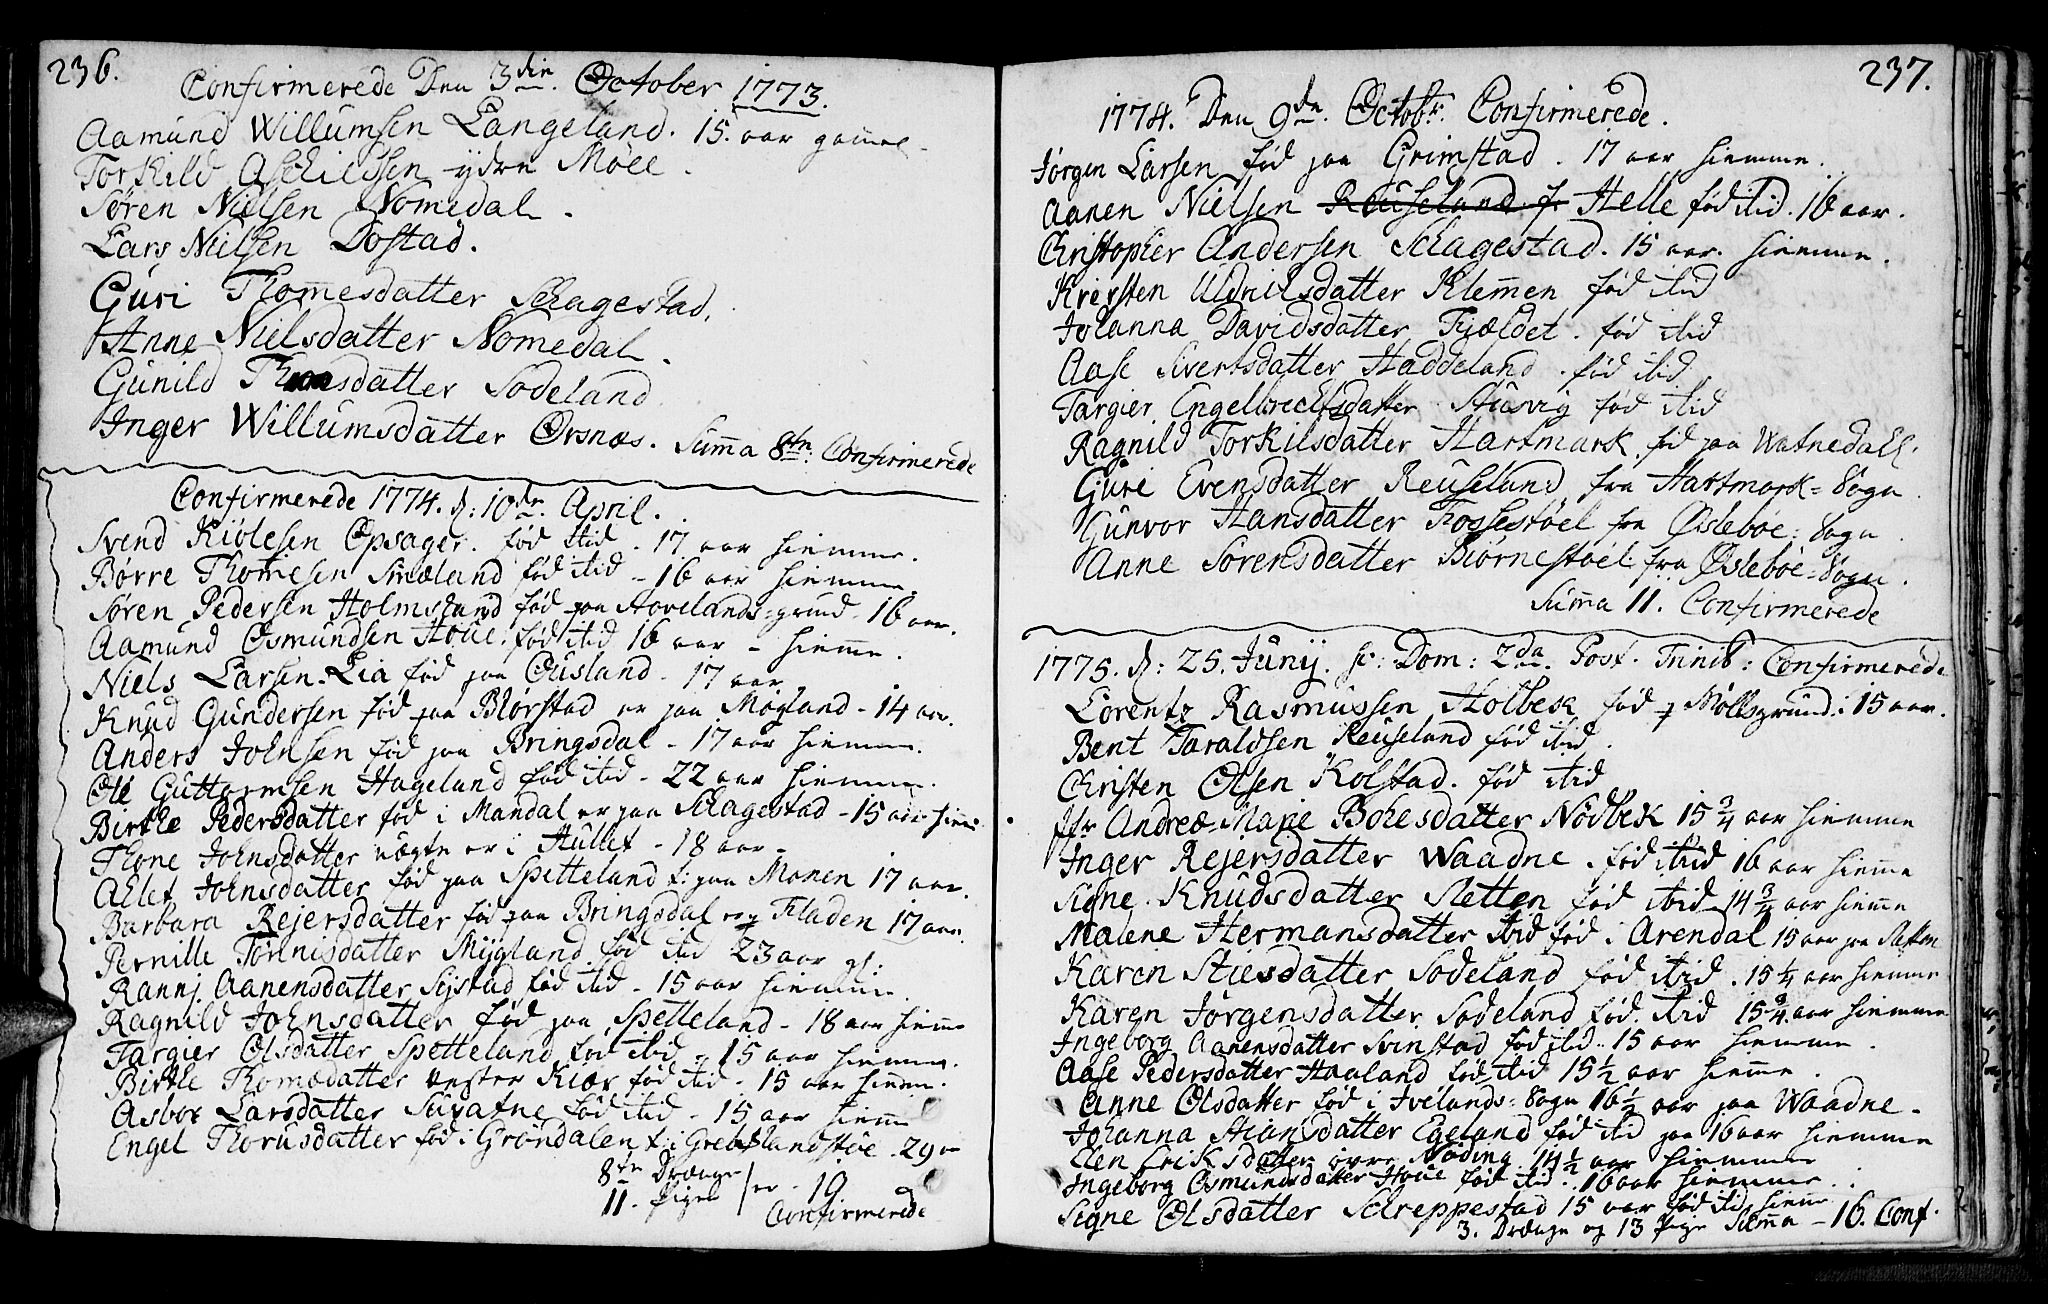 236.
Confirmerede Den 3die October 1773.
Aamund Willumsen Langeland. 15. aar gamel
Torkild Aschildsen ydre Möll.
Sören Nielsen Nomedal.
Lars Nielsen Dostad.
Guri Thomesdatter Schagestad.
Anne Nielsdatter Nomedal.
Gunild Thomsdatter Sodeland
Inger Willumsdatter Örsnæs. Summa 8te: Confirmerede
Confirmerede 1774. d: 10de April.
Svend Kiölesen Opsager. föd itid - 17 aar hiemme.
Börre Thomesen Smæland föd itid - 16 aar hiemme.
Sören Pedersen Holmstrand föd paa Hovelands-grund - 16 aar.
Aamund Osmundsen Houe. föd itid 16 aar - hieme.
Niels Larsen Lia föd paa Ousland - 17 aar
Knud Gundersen föd paa Blörstad er paa Mögland - 14 aar.
Anders Johnsen föd paa Bringsdal - 17 aar hiemme.
Ole Guttormsen Hageland föd itid - 22 aar hiemme.
Birthe Pedersdatter föd i Mandal er paa Schagestad - 15 aar hieme
Thone Johnsdatter er i Hullet - 18 aar -
Aelet Johnsdatter föd paa Spetteland t: paa Monen 17 aar.
Barbara Rejersdatter föd paa Bringsdal Fladen 17 aar.
Pernille Tönnisdatter Mygland föd itid 23 aar gl:
Rannj. Aanensdatter Systad föd itid - 15 aar hiemme.
Ragnild Johnsdatter föd paa Spetteland - 18 aar hieme
Targier Olsdatter Spetteland föd itid - 15 aar hiemme.
Birthe Thomædatter Vester Kiær föd itid - 15 aar hiemm.
Asbor Larsdatter Suvatne föd itid - 15 aar hieme
Engel Thorusdatter föd i Gröndalen t. i Grebslandstöe - 29 aar
8te Drænge
11. Piger er - 19
Confirmerede
237.
1774. Den 9de. Octobr. Confirmerede.
Jörgen Larsen föd paa Grimstad. 17 aar hiemme.
Aanen Nielsen Reuseland f. Helle föd itid. 16 aar.
Christopher Andersen Schagestad. 15 aar. hiemme.
Kiersten Uldrilsdatter Klemmen föd itid
Johanna Davidsdatter Fjældet. föd itid
Aase Sivertsdatter Haddeland. föd itid
Targier Engelbrechtsdatter Stusvig föd itid
Ragnild Torkilsdatter Hartmark. föd paa Watnedall.
Guri Evensdatter Reuseland, fra Hartmark-Sogn.
Gunvor Hansdatter Fossestöel fra Ösleböe-Sogn.
Anne Sörensdatter Biörnestöel fra Ösleböe-Sogn.
Summa 11. Confirmerede
1775. d: 25. Junij. sc: Dom: 2da. Post. Trinit: Confirmerede
Lorentz Rasmussen Holbek föd p Möllsgrund: 15 aar.
Bent Taraldsen Reuseland föd itid.
Christen Olsen Kolstad. föd itid
Jfr Andrea-Marie Bohesdatter Nödbek 15 3/4 aar hiemme
Inger Rejersdatter Waadne. föd itid 16 aar hieme
Signe Knudsdatter Sletten föd itid 14 3/4 aar hieme
Malene Hermansdatter ibid föd i Arendal 15 aar paa Sletten
Karen Stiesdatter Sodeland föd itid. 15 1/4 aar hiemme
Karen Jörgensdatter Sodeland föd. itid 15 3/4. aar hiemme
Ingeborg Aanensdatter Svinstad föd itid. 15 aar hiemme.
Aase Pedersdatter Haaland föd itid 15 1/2 aar hieme.
Anne Olsdatter föd i Ivelands-Sogn 16 1/2 aar paa Waadne.
Johanna Stiansdatter Egeland föd itid paa 16 aar hiemme
Elen Eriksdatter övre Nöding. 14 1/2 aar hiemme
Ingeborg Osmundsdatter Houe föd itid. 16 aar hiemme.
Signe Olsdatter Schreppestad 15 aar föd itid hieme
3. Drænge og 13 Pige Suma - 16. Conf.